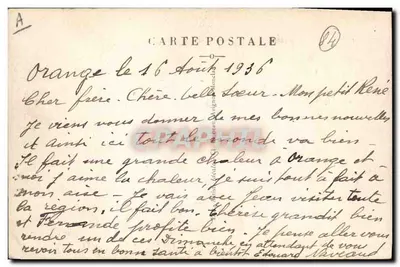 A
CARTE POSTALE
84
Orange le 16 Août 1936
Cher frère - Chère belle Sœur - Mon petit René
Je viens vous donner de mes bonnes nouvelles
et ainsi ici tout le monde va bien -
Il fait une grande chaleur à Orange et
moi j'aime la chaleur, je suis tout à fait à
mon aise - Je vais avec Jean visiter toute
la région, il fait bon. Thérèse grandit bien
et Fernande profite bien. Je pense aller vous
rendre un de ces Dimanche en attendant de vous
revoir tous en bonne santé à bientôt Edouard